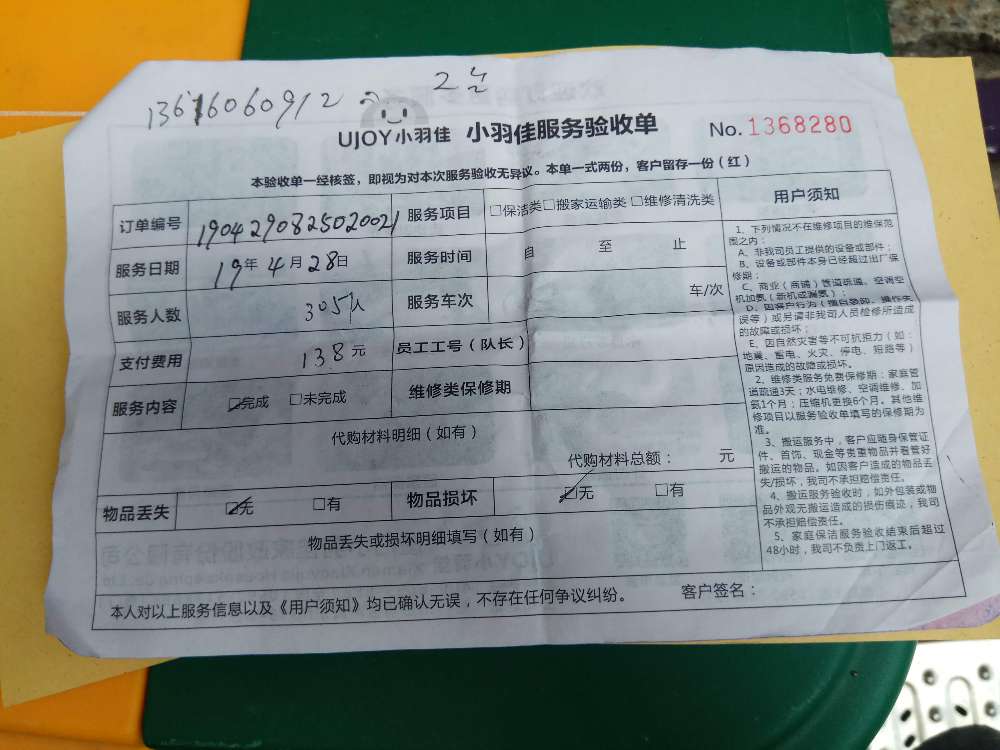 13616060912
UJOY小羽佳 小羽佳服务验收单 No.1368280
本验收单一经核签，即视为对本次服务验收无异议。本单一式两份，客户留存一份（红）
订单编号 190429082502002 服务项目 □保洁类□搬家运输类□维修清洗类
服务日期 19年4月28日 服务时间 自 至 止
服务人数 服务车次 车/次
支付费用 138元 员工工号（队长）
服务内容 ☑完成 □未完成 维修类保修期
代购材料明细（如有）
代购材料总额： 元
物品丢失 ☑无 □有 物品损坏 ☑无 □有
物品丢失或损坏明细填写（如有）
本人对以上服务信息以及《用户须知》均已确认无误，不存在任何争议纠纷。 客户签名：
用户须知
1、下列情况不在维修项目的维保范
围之内：
A、非我司员工提供的设备或部件；
B、设备或部件本身已经超过出厂保
修期；
C、商业（商铺）管道疏通、空调空
机加氨（新机或漏氨）；
D、因客户行为（擅自移动、操作失
误等）或另请非我司人员检修所造成
的故障或损坏；
E、因自然灾害等不可抗拒力（如：
地震、蓄电、火灾、停电、短路等）
原因造成的故障或损坏。
2、维修类服务免费保修期：家庭管
道疏通3天；水电维修、空调维修、加
氨1个月；压缩机更换6个月。其他维
修项目以服务验收单填写的保修期为
准。
3、搬运服务中，客户应随身保管证
件、首饰、现金等贵重物品并看管好
搬运的物品。如因客户造成的物品丢
失/损坏，我司不承担赔偿责任。
4、搬运服务验收时，如外包装或物
品外观无搬运造成的损伤痕迹，我司
不承担赔偿责任。
5、家庭保洁服务验收结束后超过
48小时，我司不负责上门返工。